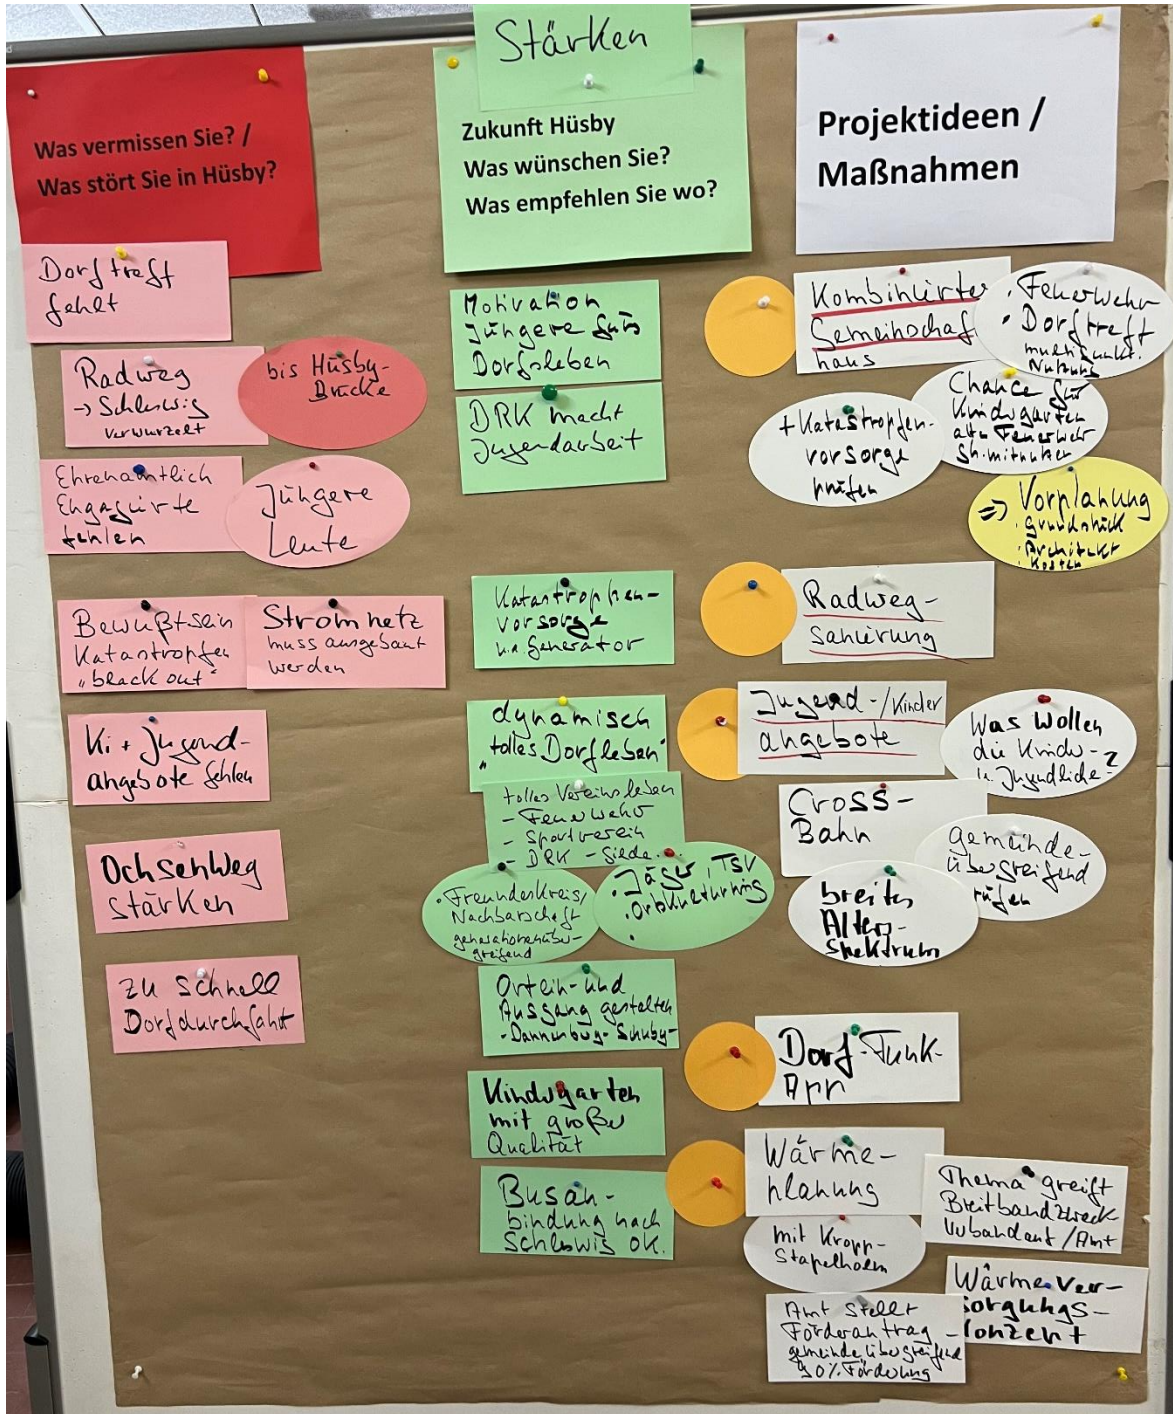 Was vermissen Sie? /
Was stört Sie in Hüsby?
Dorftreff
fehlt
Radweg
→ Schleswig
verwurzelt
bis Hüsby-
Brücke
Ehrenamtlich
Engagierte
fehlen
Jüngere
Leute
Bewußtsein
Katastropfen
"black out"
Stromnetz
muss ausgebaut
werden
Ki + Jugend-
angebote fehlen
Ochsenweg
stärken
zu schnell
Dorfdurchfahrt
Stärken
Zukunft Hüsby
Was wünschen Sie?
Was empfehlen Sie wo?
Motivation
Jüngere fürs
Dorfsleben
DRK macht
Jugendarbeit
Katastrophen-
vorsorge
u.a Generator
dynamisch
"tolles Dorfleben"
tolles Vereinsleben
- Feuerwehr
- Sportverein
- DRK - Gilde
· Freundeskreis/
Nachbarschaft
generationenüber-
greifend
· Jäger, TSV
· Ortskulturring
Ortein- und
Ausgang gestalten
- Dannenbug - Schuby -
Kindergarten
mit großer
Qualität
Busan-
bindung nach
Schleswig ok.
Projektideen /
Maßnahmen
Kombinierter
Gemeinschaf
haus
· Feuerwehr
· Dorftreff
multifunkt.
Nutzung
+ Katastropfen-
vorsorge
prüfen
Chance für
Kindergarten
alte Feuerwehr
⇒ Vorplanung
· Grundstück
· Architekt
· Kosten
Radweg-
sanierung
Jugend-/Kinder
angebote
Was wollen
die Kinder-
u. Jugendliche?
Cross-
Bahn
gemeinde-
übergreifend
rüfen
breites
Alters-
spektrum
Dorf-Funk-
App
Wärme-
planung
mit Kropp-
Stapelholm
Thema greift
Breitbandzweck
verbandent /Amt
Wärmever-
sorgungs-
konzept
Amt stellt
Förderantrag -
gemeindeübergreifend
90% Förderung